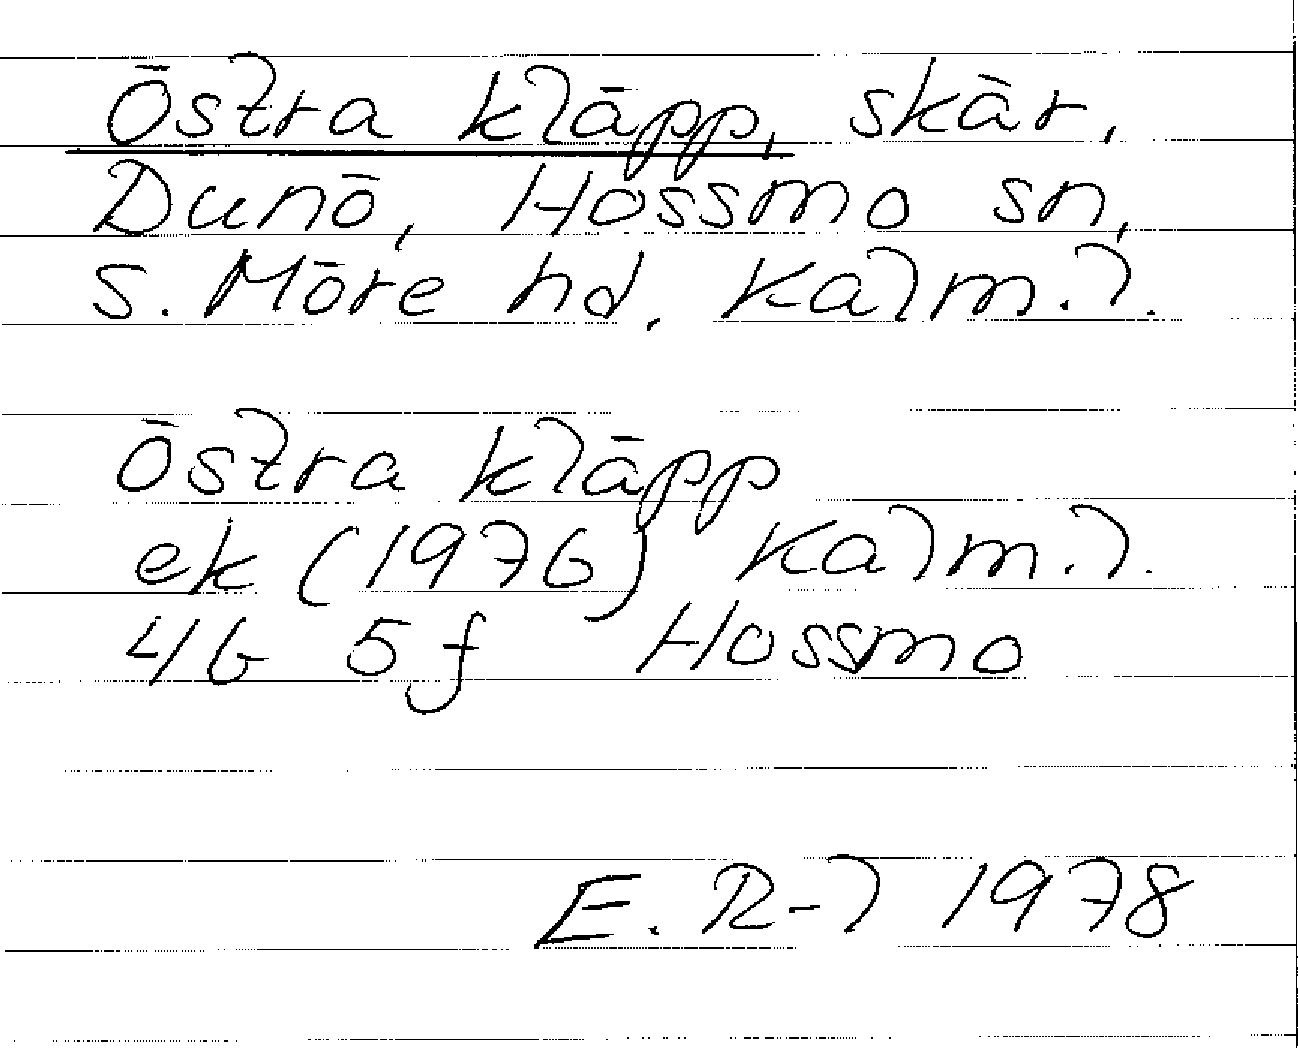 Östra kläpp, skär,
Dunö, Hossmo sn,
S. Möre hd, Kalm. l.
Östra kläpp
ek (1976) Kalm. l.
4G 5f Hossmo
E. R-l 1978